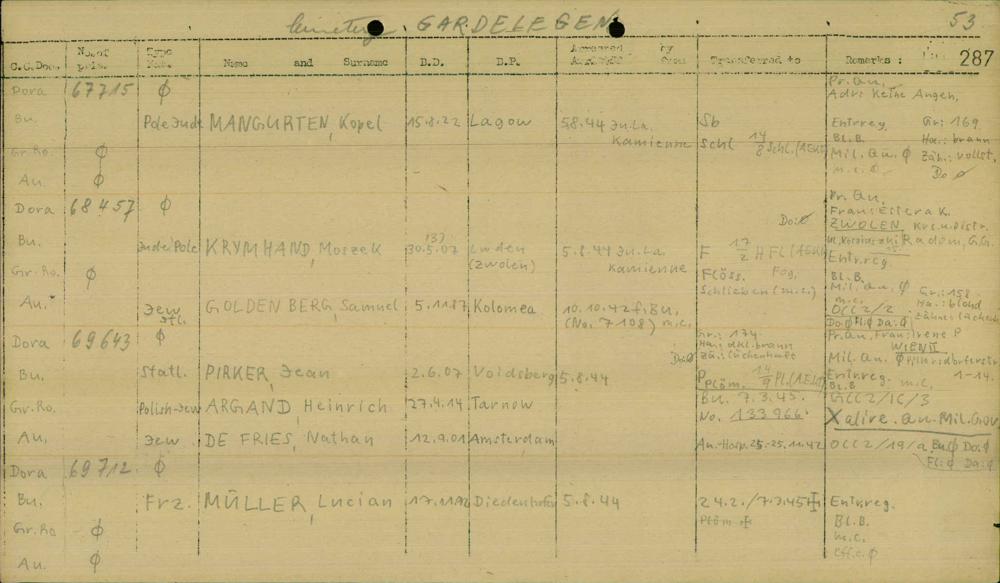 Cemetery GARDELEGEN 53
C.C. Doc. No. of pris. Type Nat. Name and Surname B.D. B.P. Arrested by from Transferred to Remarks : 287
Dora 67715 Ø Pr. Qu.
Adr: Keine Angeh.
Bu. Pole Jude MANGURTEN, Kopel 15.8.22 Lagow 5.8.44 Ju. La. Kamienne Sb Entr.reg. Gr: 169
Schl 14/8 Schl. (AEKdo) Bl. B. Ha.: braun
Gr. Ro. Ø Mil. Qu. Ø Zäh.: vollst.
Au. Ø m.c. Ø Do Ø
Dora 68457 Ø Pr. Qu.
Frau: Estera K.
Do: Ø ZWOLEN Krs. u. Distr.
Radom, G.G.
Bu. Jude Pole KRYMHAND, Moszek 30.5.07 (Zwolen) 5.8.44 Ju. La. Kamienne F 17/2 HFL Entr.reg.
Gr. Ro. Ø Flöss. Bl. B.
Schlieben (m.c.) Mil. Qu. Ø Gr.: 158
m.c. Ha.: blond
Au. Jew Stl. GOLDENBERG Samuel 5.11.87 Kolomea 10.10.42 f. Bu. (No. 7108) m.c. OCC 2/2 Zähne: lückenh.
Do Ø Fl: Ø Da: Ø
Dora 69643 Ø Gr.: 174 Pr. Qu. Frau: Irene P
Ha.: dkl. braun WIEN II
Do: Ø Zä.: lückenhaft Mil. Qu. Ø
Bu. Statl. PIRKER, Jean 2.6.07 Voidsberg 5.8.44 P Plöm. 14/9 Pl. (AEKdo) Entr.reg. m.c. 1-14.
Bl. B
Gr. Ro. Polish-Jew ARGAND Heinrich 27.4.14 Tarnow Bu. 7.3.45. OCC 2/1C/3
No. 133966 X alive. Qu. Mil. Gov
Au. Jew DE FRIES, Nathan 12.9.01 Amsterdam Au.-Hosp. 25-25.11.42 OCC 2/19/a Bu: Ø Do: Ø
Fl: Ø Da: Ø
Dora 69712 Ø
Bu. Frz. MÜLLER, Lucian 17.11.92 Diedenhofen 5.8.44 24.2./7.3.45 Entr.reg.
Gr. Ro Ø Plöm Bl. B.
m.c.
Au. Ø Eff. c. Ø